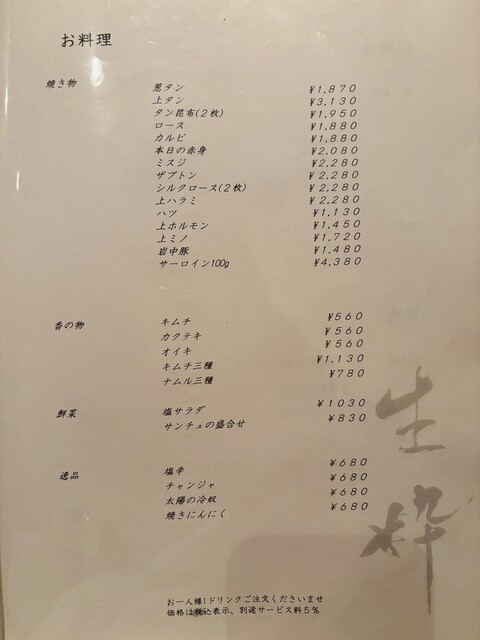 お料理
焼き物
葱タン ¥1,870
上タン ¥3,130
タン昆布(2枚) ¥1,950
ロース ¥1,880
カルビ ¥1,880
本日の赤身 ¥2,080
ミスジ ¥2,280
ザブトン ¥2,280
シルクロース(2枚) ¥2,280
上ハラミ ¥2,280
ハツ ¥1,130
上ホルモン ¥1,450
上ミノ ¥1,720
岩中豚 ¥1,480
サーロイン100g ¥4,380
香の物
キムチ ¥560
カクテキ ¥560
オイキ ¥560
キムチ三種 ¥1,130
ナムル三種 ¥780
鮮菜
塩サラダ ¥1030
サンチュの盛合せ ¥830
逸品
塩辛 ¥680
チャンジャ ¥680
太陽の冷奴 ¥680
焼きにんにく ¥680
生粋
お一人様1ドリンクご注文くださいませ
価格は税込表示、別途サービス料5%